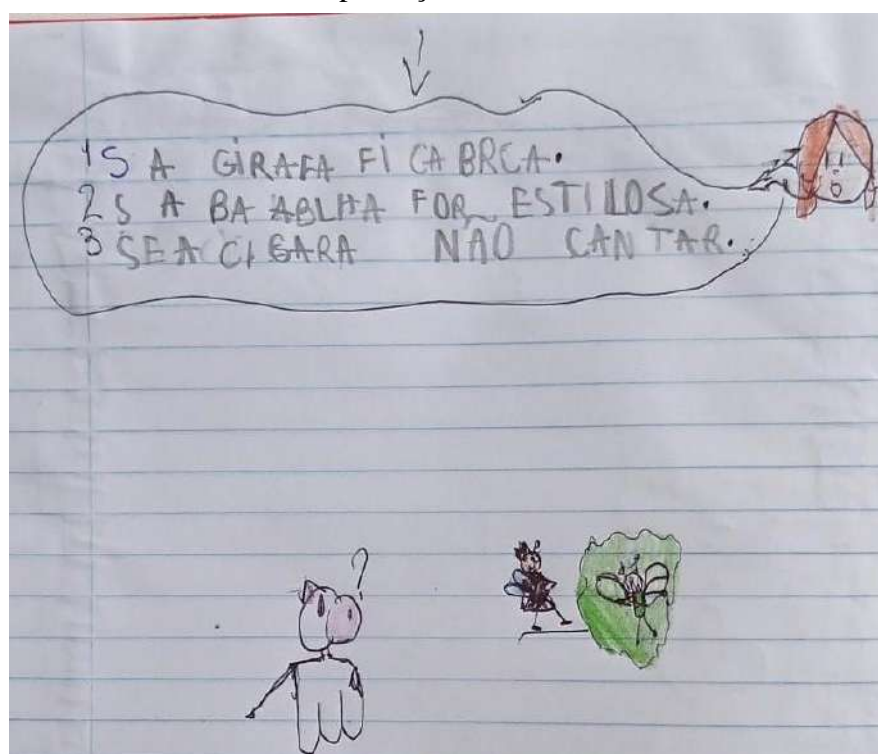 1 S A GIRAFA FI CA BRCA.
2 S A BA ABLHA FOR ESTILOSA.
3 SE A CIGARA NÃO CANTAR.
?